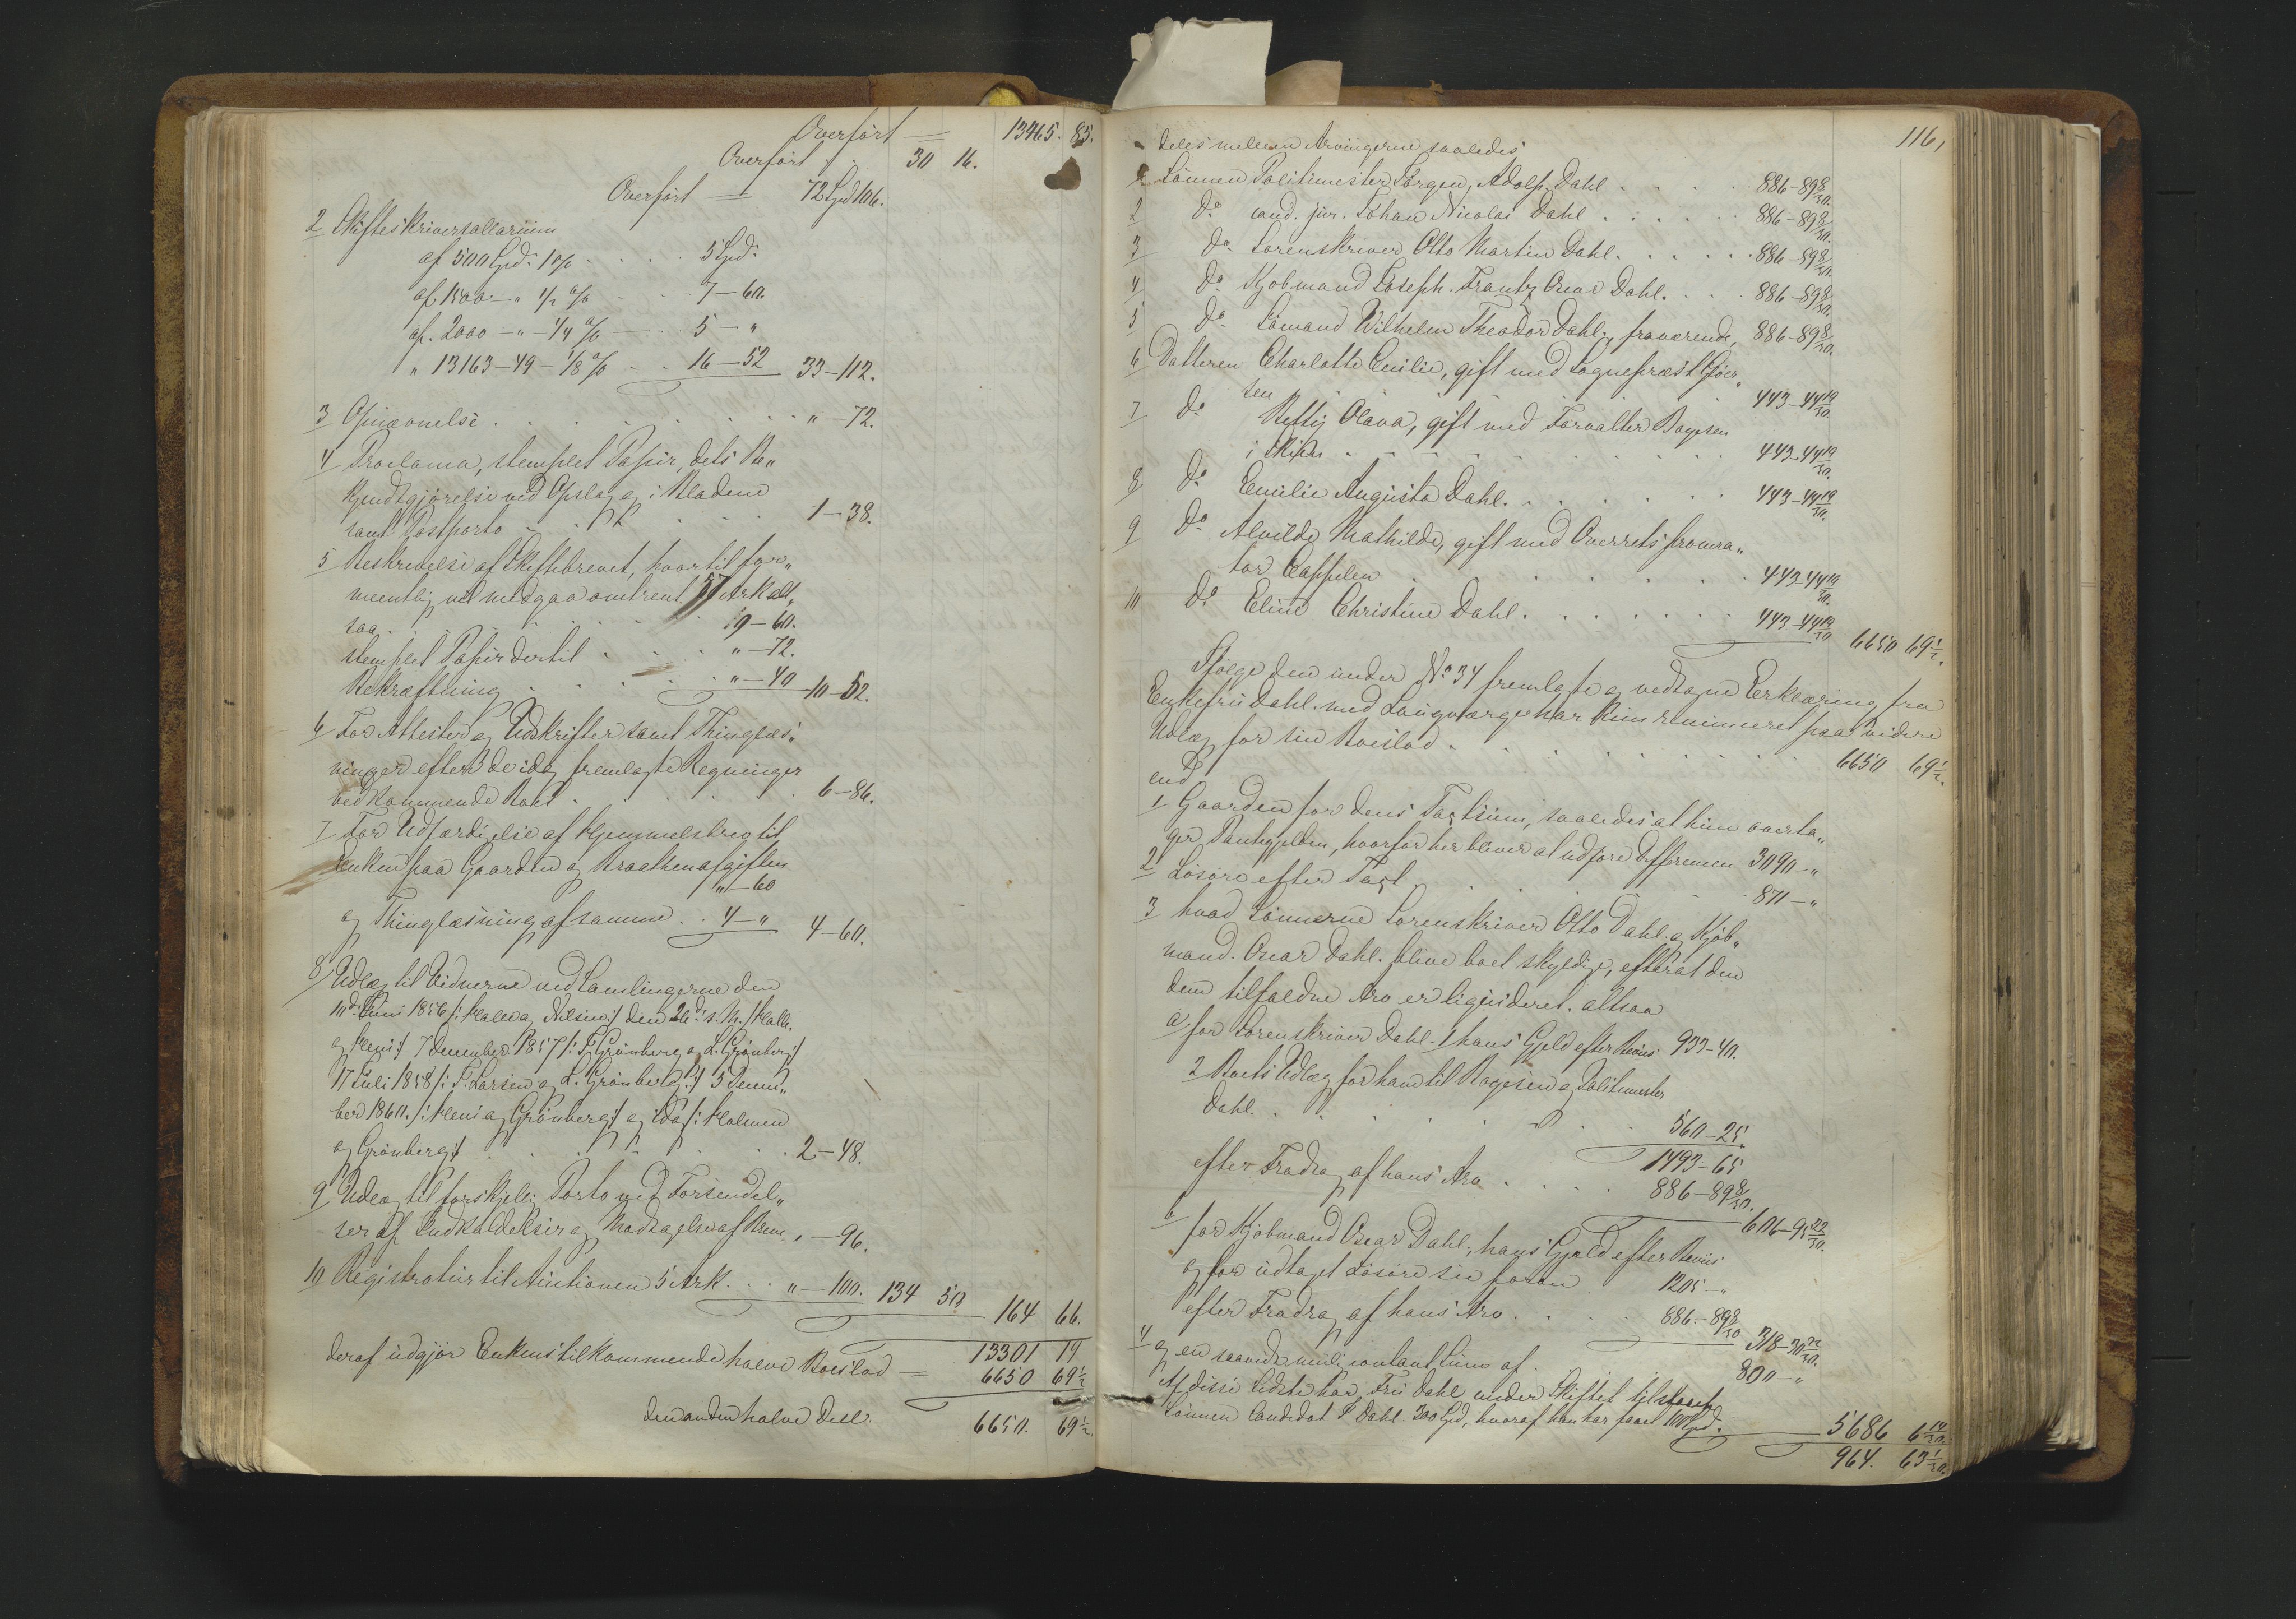 Overført — 13465. 85.
Overført . . 30 16.
Overført — 72 Spd 106.
2 Skifteskriversallarium
af 500 Spd. 1 % . . . . 5 Spd.
af 1500 — " ½ % . . 7 — 60.
af. 2000 — " — ¼ % — . . 5 — "
" 13163 — 49 — ⅛ % . . 16 — 52 33 — 112.
3 Opnævnelse . . . . . . . . " — 72.
4 Proclama, stemplet Papir, dets Be„
kjendtgjørelse ved Opslag og i Bladene
samt Postporto . . . . . . 1 — 38.
5 Beskrivelse af Skiftebrevet, hvortil for„
meentlig vil medgaa omtrent 57 Ark alt„
saa . . . . . . . . 9 — 60.
stemplet Papir dertil . . . . " — 72.
Bekræftning . . . . . . " — 40 10 — 52.
6 For Attester og Udskrifter samt Thinglæs„
ninger efter de idag fremlagte Regninger
vedkommende Boet . . . . . . 6 — 86.
7 For Udfærdigelse af Hjemmelsbrev til
Enken paa Gaarden og Braathenafgiften
" — 60
og Thinglæsning af samme . . 4 — " 4 — 60.
8 Udlæg til Vidnerne ved Samlingerne den
10de Juni 1856 /: Holm og Nilsen :/ den 26de s. M. /: Holm
og Heni :/ 7 December 1857 /: F. Grønberg og L. Grønberg :/
17 Juli 1858 /: F. Larsen og L. Grønberg :/ 3 Decem„
ber 1860. /: Heni og Grønberg :/ og idag /: Holmen
og Grønberg :/ . . . . . . . 2 — 48.
9 Udlæg til forskjellig Porto ved Forsendel„
ser af Indkaldelser og Modtagelse af Breve " — 96.
10 Registratur til Auctionen 5 Ark . . . " — 100. 134 50
164 66.
13301 19
deraf udgjør Enkens tilkommende halve Boeslod — 6650 69½
den anden halve Deel. 6650. 69½
116,
deles mellem Arvingerne saaledes
1 Sønnen Politimester Jørgen, Adolph. Dahl . . . . 886 — 89 8/20.
2 do cand. jur. Johan Nicolai Dahl . . . . . 886 — 89 8/20.
3 do Sorenskriver Otto Martin Dahl . . . . . 886 — 89 8/20.
4 do Kjøbmand Joseph. Frantz Oscar Dahl. . . . 886 — 89 8/20.
5 do Sømand Wilhelm Theodor Dahl, fraværende, 886 — 89 8/20.
6 Datteren Charlotte Emilie, gift med Sognepræst Gjør„
sen . . . . . . . . 443 — 44 19/20.
7 do Betty Olava, gift med Forvalter Boyesen
i Skien . . . . . . . . . . 443 — 44 19/20.
8 do Emilie Augusta Dahl . . . . . . . 443 — 44 19/20.
9 do Alvilde Mathilde, gift med Overretsprocura„
tor Cappelen . . . . . . . . 443 44 19/20.
10 do Eline Christine Dahl . . . . . . . 443 — 44 19/20
6650 69½.
Ifølge den under No 34 fremlagte og vedtagne Erklæring fra
Enkefru Dahl. med Laugværge har hun renunceret paa videre
Udlæg for sin Boeslod . . . . . . . . . 6650 69½.
end
1 Gaarden for dens Taxtsum, saaledes at hun overta„
ger Pantegjelden, hvorfor her bliver at udføre Differencen 3090 — "
2 Løsøre efter Taxt . . . . . . . . 870 — "
3 hvad Sønnerne Sorenskriver Otto Dahl. og Kjøb„
mand. Oscar Dahl. blive boet skyldige, efterat den
dem tilfaldne Arv er liqvideret. altsaa
a, for Sorenskriver Dahl. 1 hans Gjeld efter Beviis 933 — 40.
2 Boets Udlæg for ham til Boyesen og Politimester
Dahl. . . . . . . . . 560 — 25.
1493 — 65
efter Fradrag af hans Arv . . . . 886 — 89 8/20.
606 — 95 22/30.
b for Kjøbmand Oscar Dahl, hans Gjeld efter Beviis
og for udtaget Løsøre see foran 1205 — "
efter Fradrag af hans Arv . . . . 886 — 89 8/20
318 — 30 22/30.
4 og en saavidt mulig contant Sum af . . . . . 800 — "
Af disse Sidste har Fru Dahl under Skiftet tilstaaet
Sønnen Candidat J. Dahl. 300 Spd, hvoraf han har faaet 100 Spd.
5686 6 14/30.
964. 63 1/30.